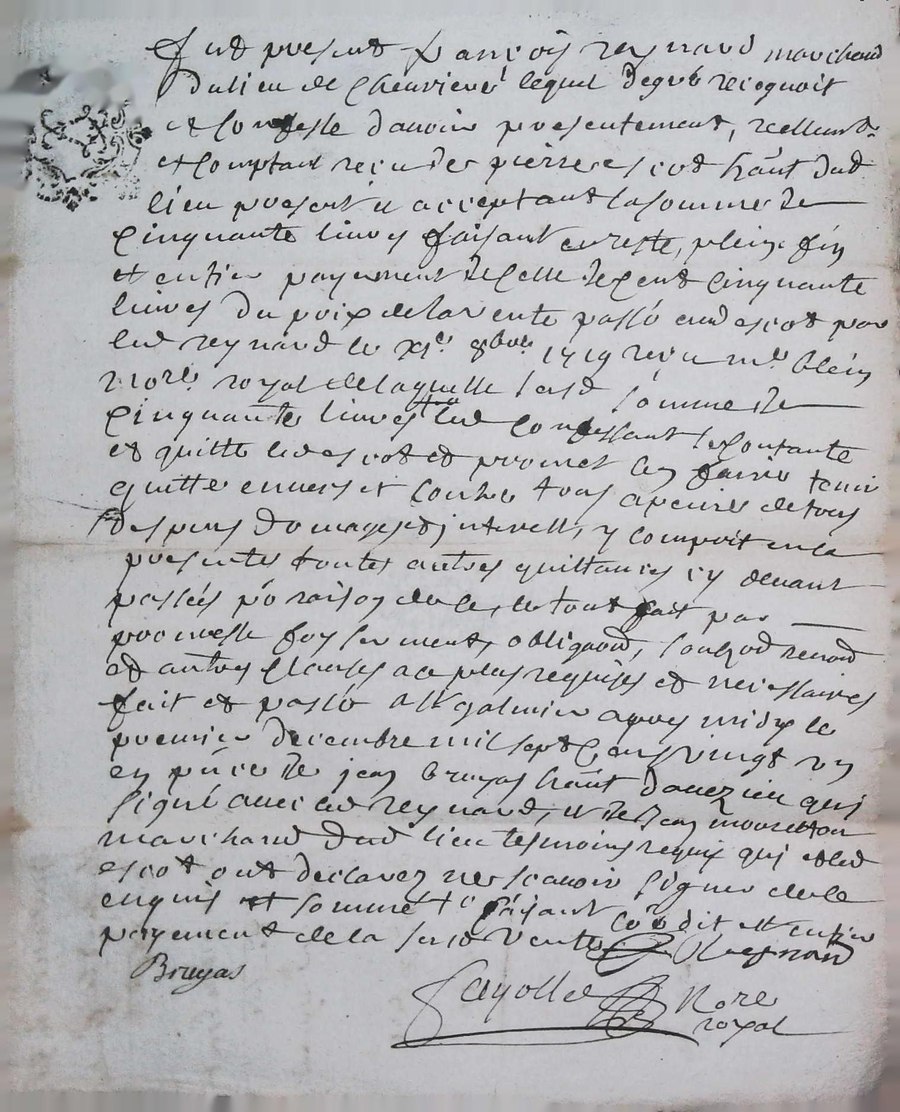 fut present françois reynaud marchand
du lieu de Chevrieres lequel de gré recognoit
et confesse d'avoir presentement, reellemt
et comptant receu de pierre escot hãnt dud
lieu present et acceptant la somme de
cinquante livres faisant en reste, plein, fin
et entier payement de celle de cent cinquante
livres du prix de la vente passé aud escot par
led reynaud le xje 8bre 1719 receu me blein
nore royal de laquelle susd somme de
cinquante livres led confessant se contante
et quitte led escot et promet l'en faire tenir
quitte envers et contre tous a peine de tous
despens domages et interests, y comprit en la
presente toutes autres quittances cy devant
passées p raison de ce, le tout fait par
promesse foy serment, obligaõn, soubzon renonõn
et autres clauses a ce plus requises et necessaires
fait et passé a St galmier apres midy le
premier decembre mil sept cent vingt un
en pñce de jean bruyas hãnt d'avezieu qui a
signé avec led reynaud, et de jean
marchand dud lieu tesmoins requis qui et led
escot ont declarez ne scavoir signer de ce
enquis et sommé faisant coẽ dit est entier
payement de la susd vente Reynaud
Bruyas
fayolle Nore
royal